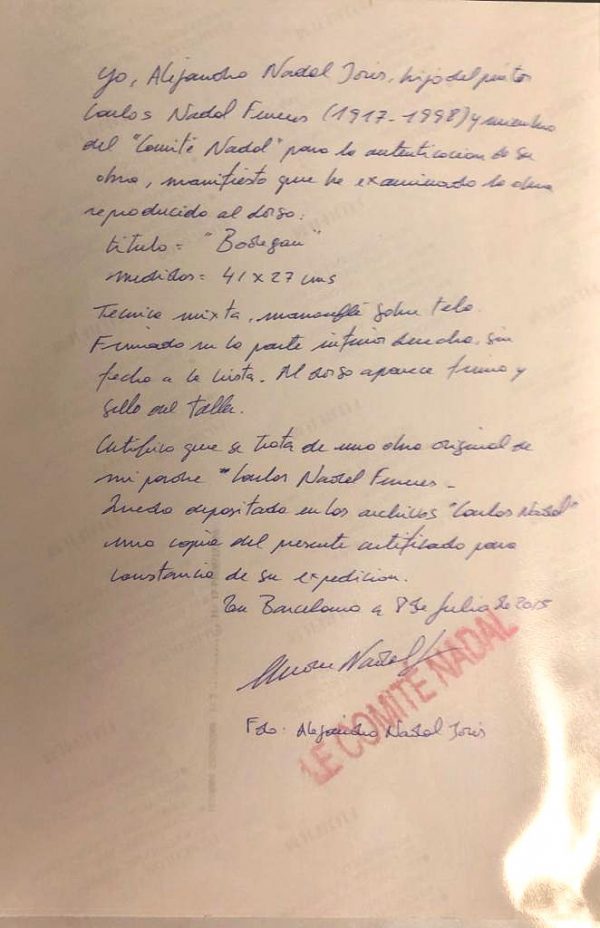 Yo, Alejandro Nadal Joris, hijo del pintor
Carlos Nadal Farreres (1917-1998) y miembro
del "Comité Nadal" para la autenticacion de su
obra, manifiesto que he examinado la obra
reproducido al dorso:
titulo = "Bodegon"
medidas = 41 x 27 cms
Tecnica mixta, marouflé sobre tela.
Firmado en la parte inferior derecha, sin
fecha a la vista. Al dorso aparece firma y
sello del Taller.
Certifico que se trata de una obra original de
mi padre "Carlos Nadal Farreres -
Queda depositada en los archivos "Carlos Nadal"
una copia del presente certificado para
constancia de su expedicion.
En Barcelona a 8 de Julio de 2015
LE COMITE NADAL
Fdo: Alejandro Nadal Joris